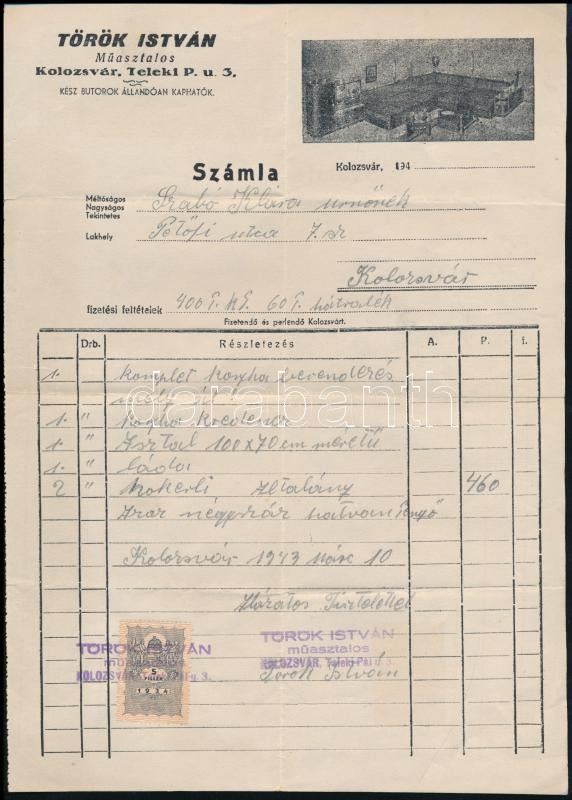 TÖRÖK ISTVÁN
Műasztalos
Kolozsvár, Teleki P. u. 3.
KÉSZ BUTOROK ÁLLANDÓAN KAPHATÓK.
Számla
Kolozsvár, 194
Méltóságos
Nagyságos
Tekintetes
Szabó Klára urnőnek
Lakhely Petőfi utca 7. sz
Kolozsvár
fizetési feltételek 400 P. 60 P. hátralék
Fizetendő és perlendő Kolozsvárt.
Drb. Részletezés A. P. f.
1. komplet konyha berendezés
mely áll:
1. " konyha kredenc
1. " Asztal 100x70 cm méretű
1. " láda
2 " hokerli Általány 460
Azaz négyszáz hatvan Pengő
Kolozsvár 1943 márc 10
Hazafias Tisztelettel
TÖRÖK ISTVÁN
műasztalos
KOLOZSVÁR, Teleki Pál u. 3.
TÖRÖK ISTVÁN
műasztalos
KOLOZSVÁR, Teleki Pál u. 3.
Török István
5
1934
darabanth